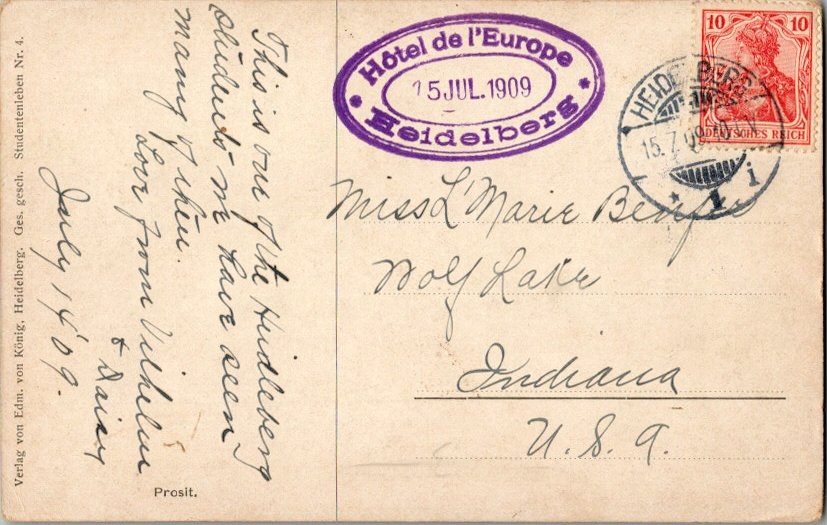 Verlag von Edm. von König, Heidelberg. Ges. gesch. Studentenleben Nr. 4.
This is one of the Heidleberg
students we have seen
many of them.
Love from Vilhelm
+ Daisy
July 14 '09.
Prosit.
Hôtel de l'Europe
15 JUL. 1909
* Heidelberg *
10 10
DEUTSCHES REICH
HEIDELBERG
15. 7. 09.
* 1 i
Miss L'Marie
Wolf Lake
Indiana
U. S. A.